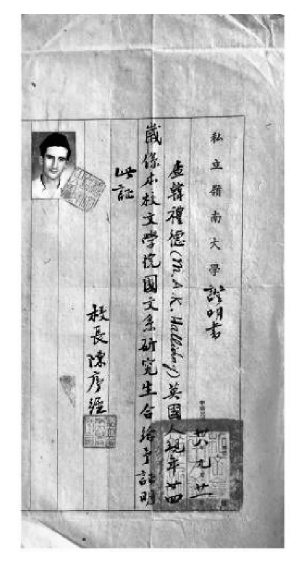 私立嶺南大學證明書
查韓禮德(M.A.K. Halliday)英國人現年廿四
歲係本校文學院國文系研究生合給予証明
此証
校長陳序經